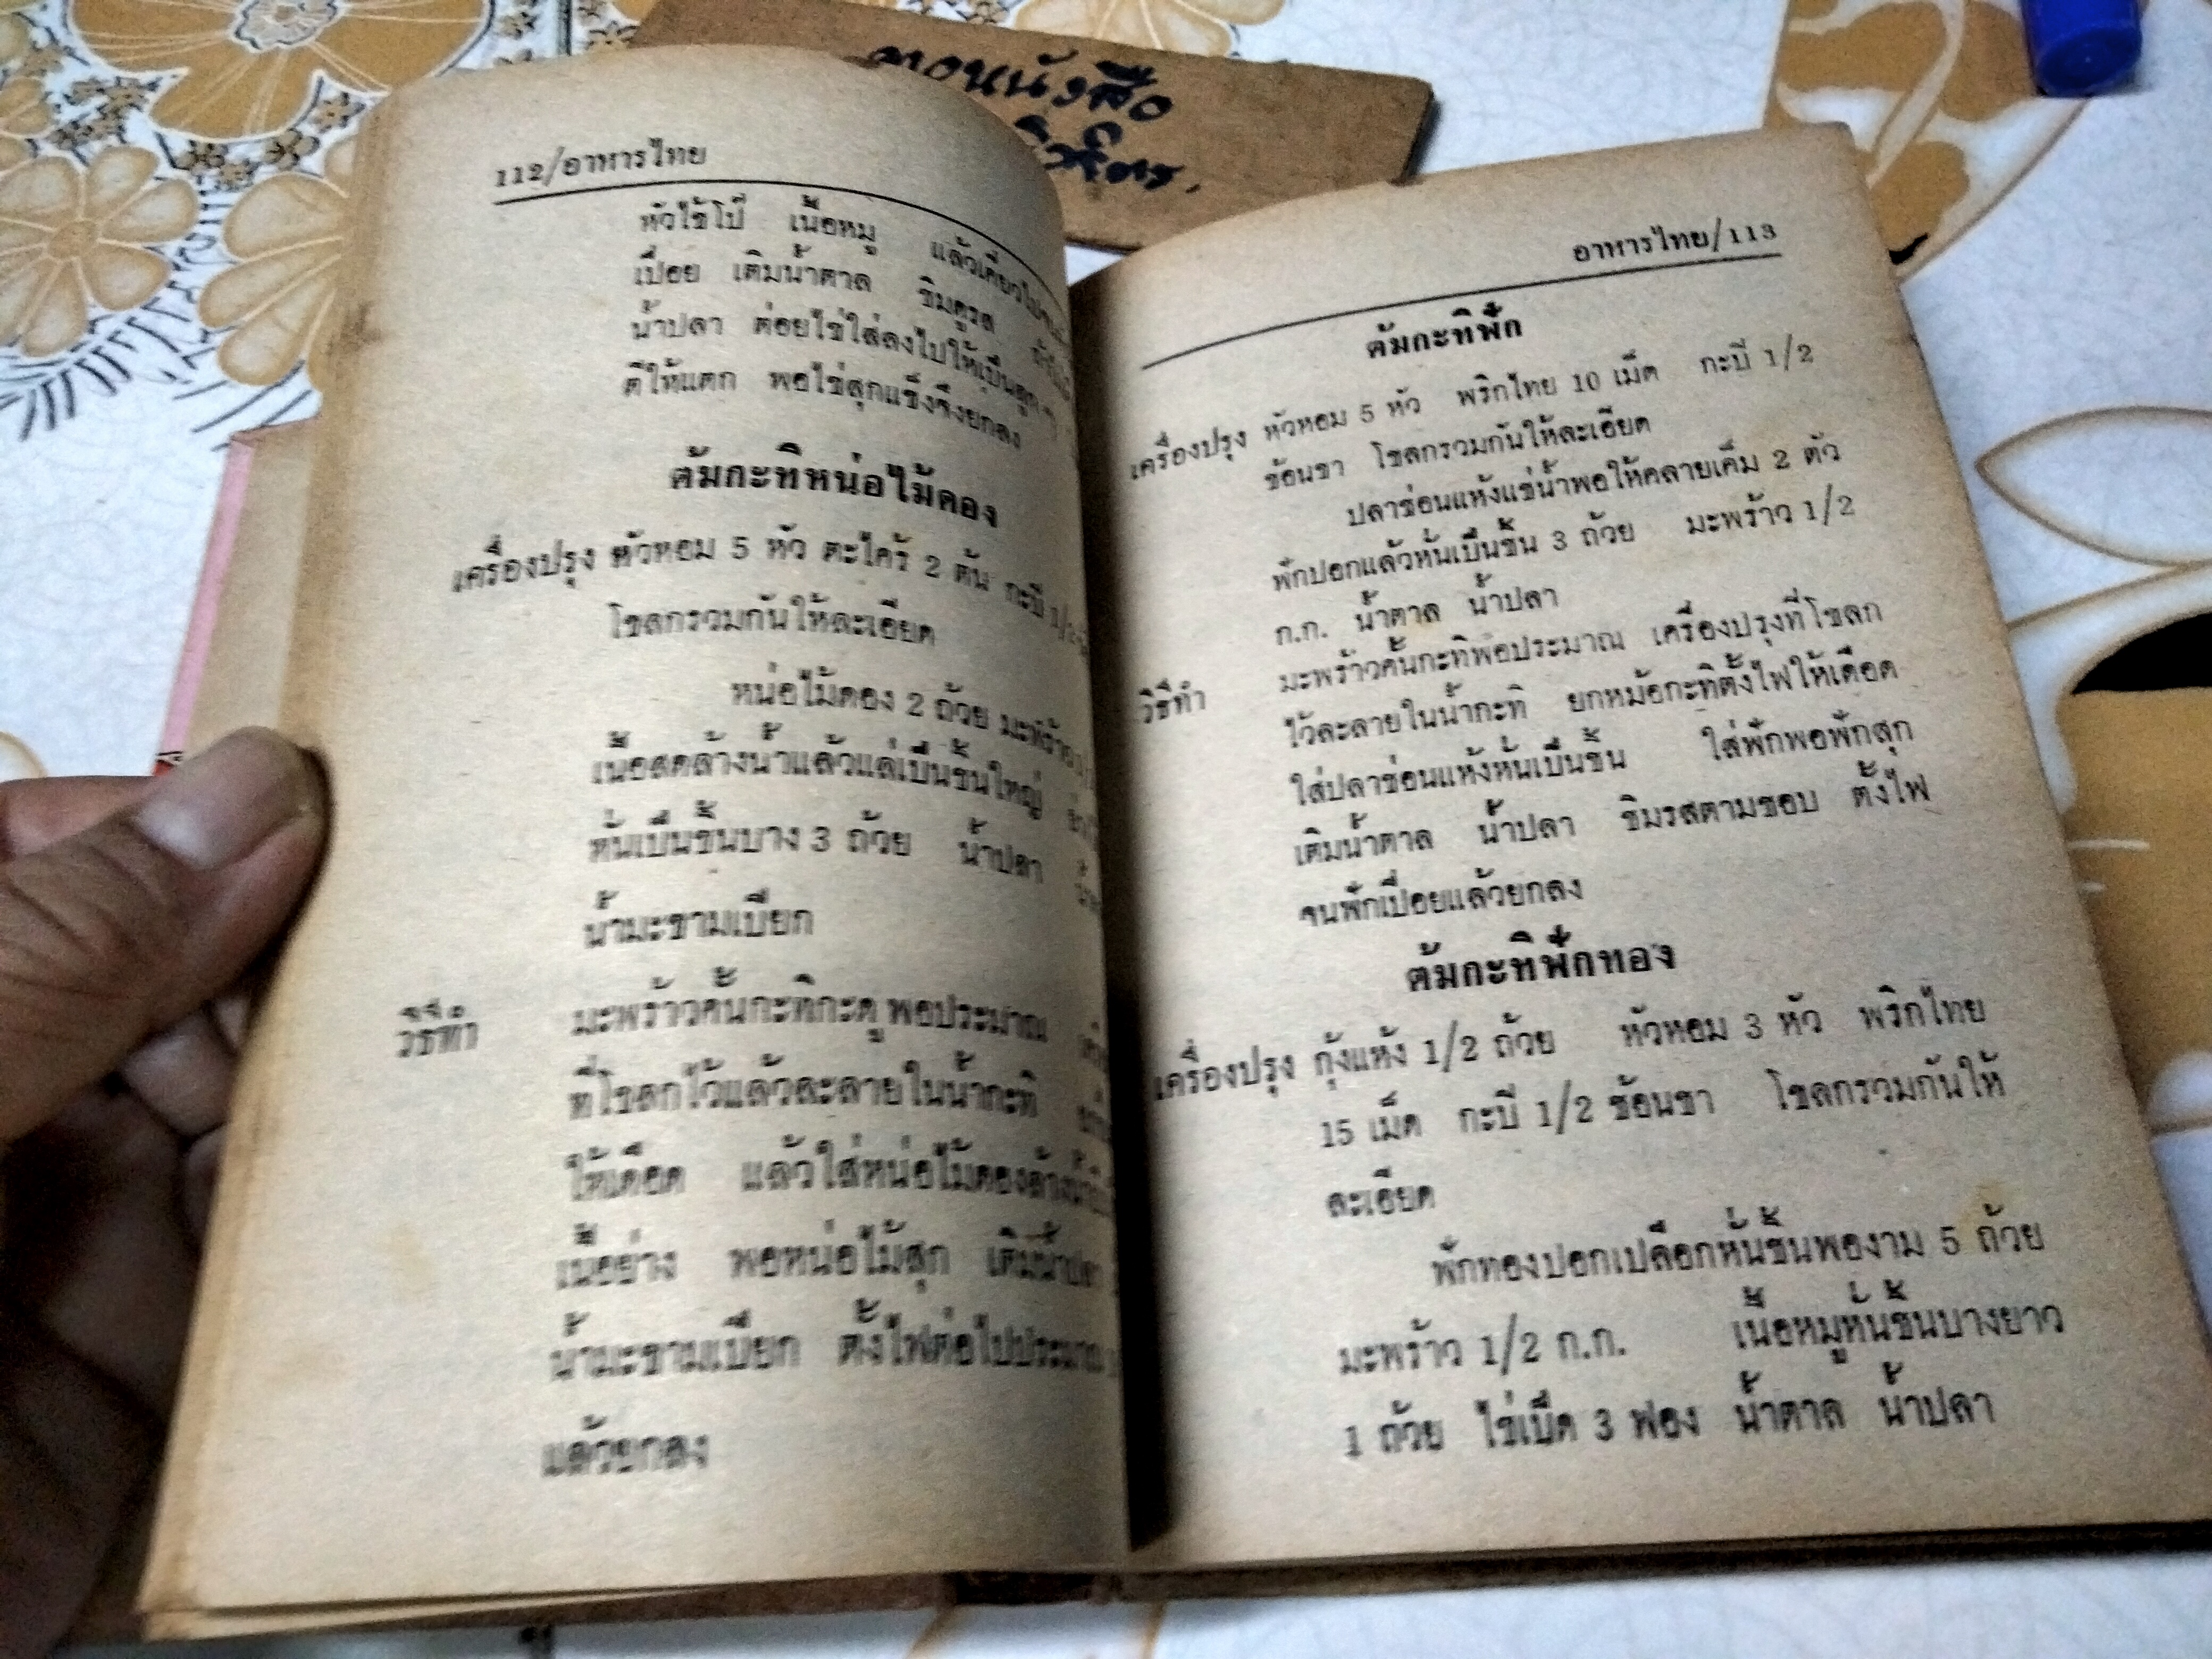 112/อาหารไทย
หัวไช้โป๊ เนื้อหมู แล้วเคี่ยวไป
เปื่อย เติมน้ำตาล ชิมดูรส
น้ำปลา ต่อยไข่ใส่ลงไปให้เป็นลูก ๆ
ตีให้แตก พอไข่สุกแข็งจึงยกลง
ต้มกะทิหน่อไม้ดอง
เครื่องปรุง หัวหอม 5 หัว ตะไคร้ 2 ต้น กะปิ 1/2
โขลกรวมกันให้ละเอียด
หน่อไม้ดอง 2 ถ้วย มะพร้าว
เนื้อสดล้างน้ำแล้วแล่เป็นชิ้นใหญ่
หั่นเป็นชิ้นบาง 3 ถ้วย น้ำปลา
น้ำมะขามเปียก
วิธีทำ มะพร้าวคั้นกะทิกะดูพอประมาณ
ที่โขลกไว้แล้วละลายในน้ำกะทิ
ให้เดือด แล้วใส่หน่อไม้ดองล้างน้ำ
เนื้อย่าง พอหน่อไม้สุก เติมน้ำปลา
น้ำมะขามเปียก ตั้งไฟต่อไปประมาณ
แล้วยกลง
ลองหนังสือ
อาหารไทย/113
ต้มกะทิฟัก
เครื่องปรุง หัวหอม 5 หัว พริกไทย 10 เม็ด กะปิ 1/2
ช้อนชา โขลกรวมกันให้ละเอียด
ปลาช่อนแห้งแช่น้ำพอให้คลายเค็ม 2 ตัว
ฟักปอกแล้วหั่นเป็นชิ้น 3 ถ้วย มะพร้าว 1/2
ก.ก. น้ำตาล น้ำปลา
วิธีทำ มะพร้าวคั้นกะทิพอประมาณ เครื่องปรุงที่โขลก
ไว้ละลายในน้ำกะทิ ยกหม้อกะทิตั้งไฟให้เดือด
ใส่ปลาช่อนแห้งหั่นเป็นชิ้น ใส่ฟักพอฟักสุก
เติมน้ำตาล น้ำปลา ชิมรสตามชอบ ตั้งไฟ
จนฟักเปื่อยแล้วยกลง
ต้มกะทิฟักทอง
เครื่องปรุง กุ้งแห้ง 1/2 ถ้วย หัวหอม 3 หัว พริกไทย
15 เม็ด กะปิ 1/2 ช้อนชา โขลกรวมกันให้
ละเอียด
ฟักทองปอกเปลือกหั่นชิ้นพองาม 5 ถ้วย
มะพร้าว 1/2 ก.ก. เนื้อหมูหั่นชิ้นบางยาว
1 ถ้วย ไข่เป็ด 3 ฟอง น้ำตาล น้ำปลา